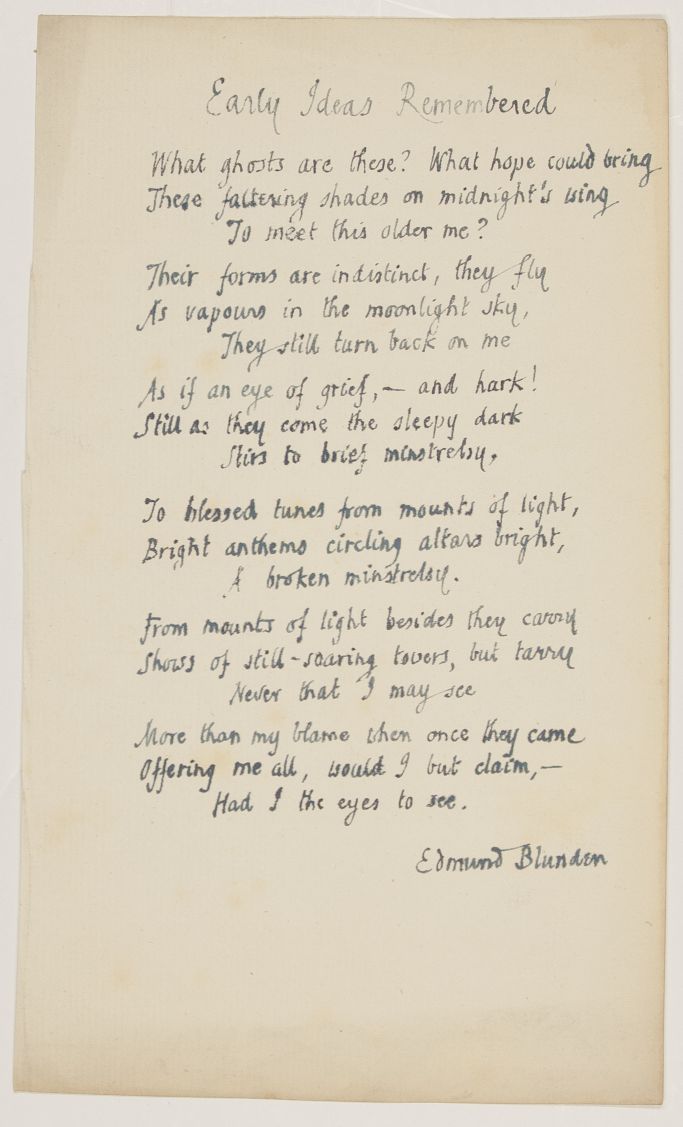 Early Ideas Remembered
What ghosts are these? What hope could bring
These faltering shades on midnight's wing
To meet this older me?
Their forms are indistinct, they fly
As vapours in the moonlight sky,
They still turn back on me
As if an eye of grief,— and hark!
Still as they come the sleepy dark
Stirs to brief minstrelsy,
To blessed tunes from mounts of light,
Bright anthems circling altars bright,
A broken minstrelsy.
From mounts of light besides they carry
Shows of still-soaring towers, but tarry
Never that I may see
More than my blame when once they came
Offering me all, would I but claim,—
Had I the eyes to see.
Edmund Blunden